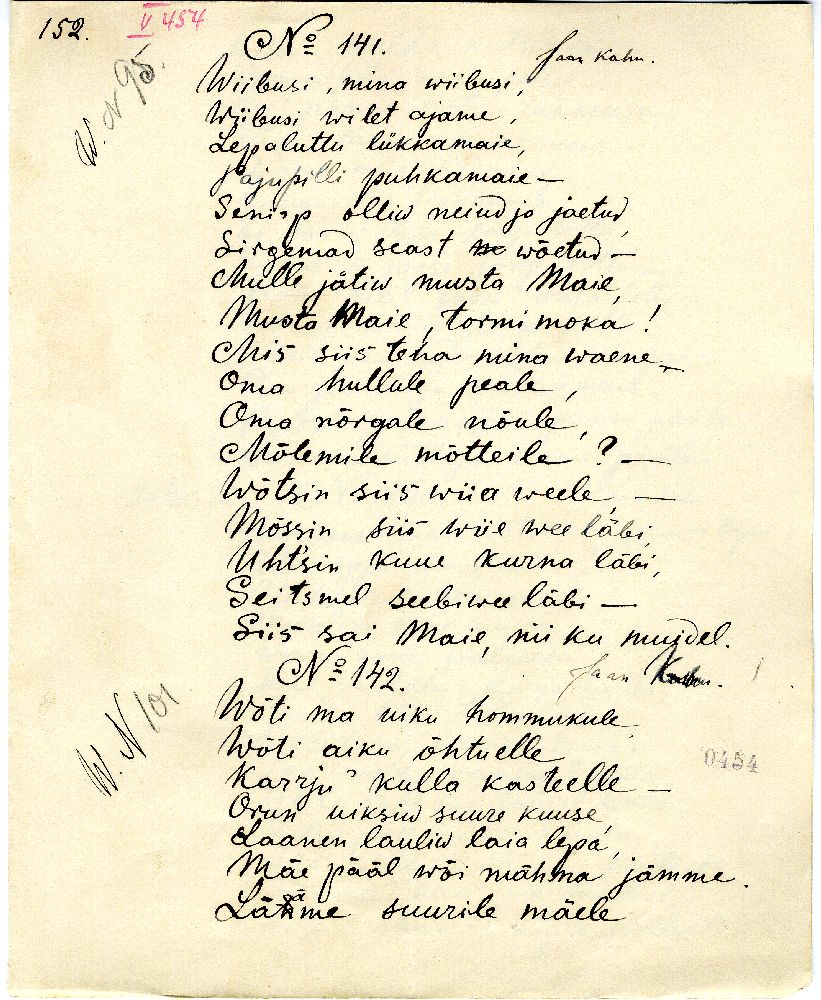 152.
V 454
No 141.
Jaan Kahu.
W. N 95.
Wiibusi, mina wiibusi,
Wiibusi wilet ajame,
Lepaluttu lükkamaie,
Pajupilli puhkamaie —
Senisp olliw neiud jo jaetud,
Sirgemad seast ne wõetud —
Mulle jätiw musta Maie,
Musta Maie, tormi moka!
Mis siis teha mina waene,
Oma hullule peale,
Oma nõrgale nõule,
Mõlemile mõtteile? —
Wõtsin siis wiia weele, —
Mõssin siis wiie wee läbi,
Uhtsin kuue kurna läbi,
Seitsmel seebiwee läbi —
Siis sai Maie, nii ku muidel.
No 142.
Jaan
W. N 101
Wõti ma uiku hommukule
Wõti aiku õhtuelle
Karrju' kulla kasteelle —
Orun uiksiw suure kuuse,
Laanen lauliw laia lepa,
Mäe pääl wõi mähma jämme.
0454
suurile mäele